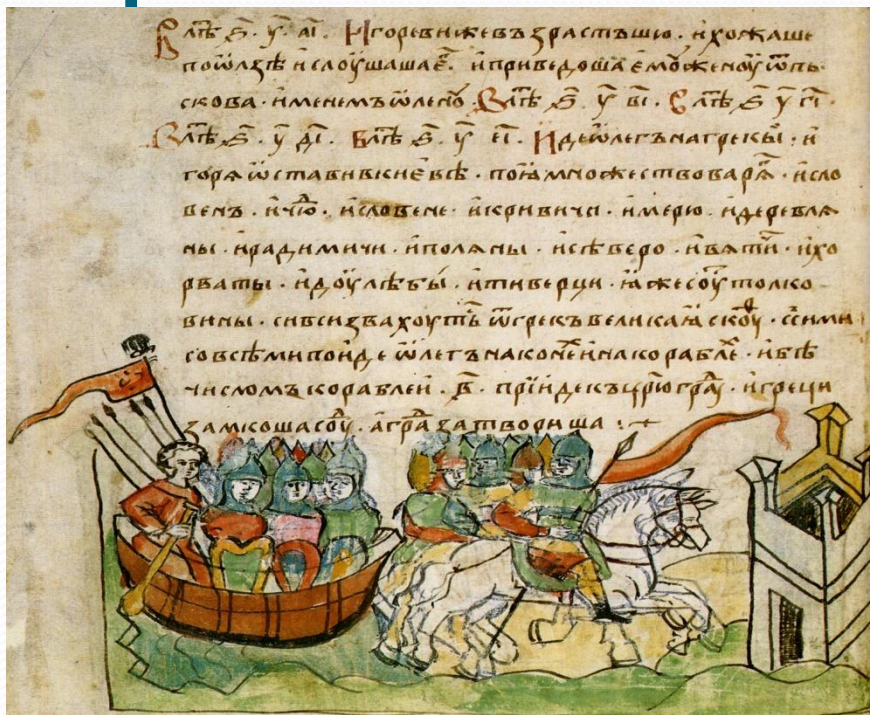 В лѣт҃ ѕ҃ . у҃ . аі҃ . Игореви же възрастъшю . и хожаше
по ѡлзѣ и слоушаша е҃ . и приведоша емоу женоу ѿ пь
скова . именемъ ѡлено . В лѣт҃ ѕ҃ у҃ ві҃ . В лѣт҃ ѕ҃ у҃ гі҃
В лѣт҃ ѕ҃ у҃ ді҃ . В лѣт҃ ѕ҃ у҃ еі҃ . Иде ѡлегъ на грекы . и
горѧ ѡстави в киевѣ . поѧ множество варѧ҃ . и сло
венъ . и чю҃ . и словене . и кривичи . и мерю . и деревлѧ
ны . и радимичи . и полѧны . и сѣверо . и вѧти҃ . и хо
рваты . и доулѣбы . и тиверци . ꙗже соуть толко
вины . си вси звахоуть ѿ грекъ великаꙗ скоу҃ . с сими
со всѣми поиде ѡлегъ на конѣ҃ и на корабле҃ . и бѣ
числомъ кораблеи . в҃ . прїиде къ цр҃ю гра҃ . и греци
замкоша соу҃ . а гра҃ затвориша